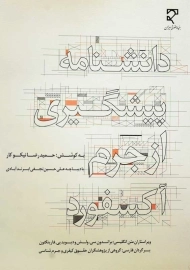 دانشنامه
پیشگیری
از جرم
آکسفورد
به کوشش: حمیدرضا نیکوکار
با دیباچه علی حسین نجفی ابرندآبادی
ویراستاران متن انگلیسی: براندون سی. ولش و دیوید پی. فارینگتون
برگردان فارسی: گروهی از پژوهشگران حقوق کیفری و جرم‌شناسی